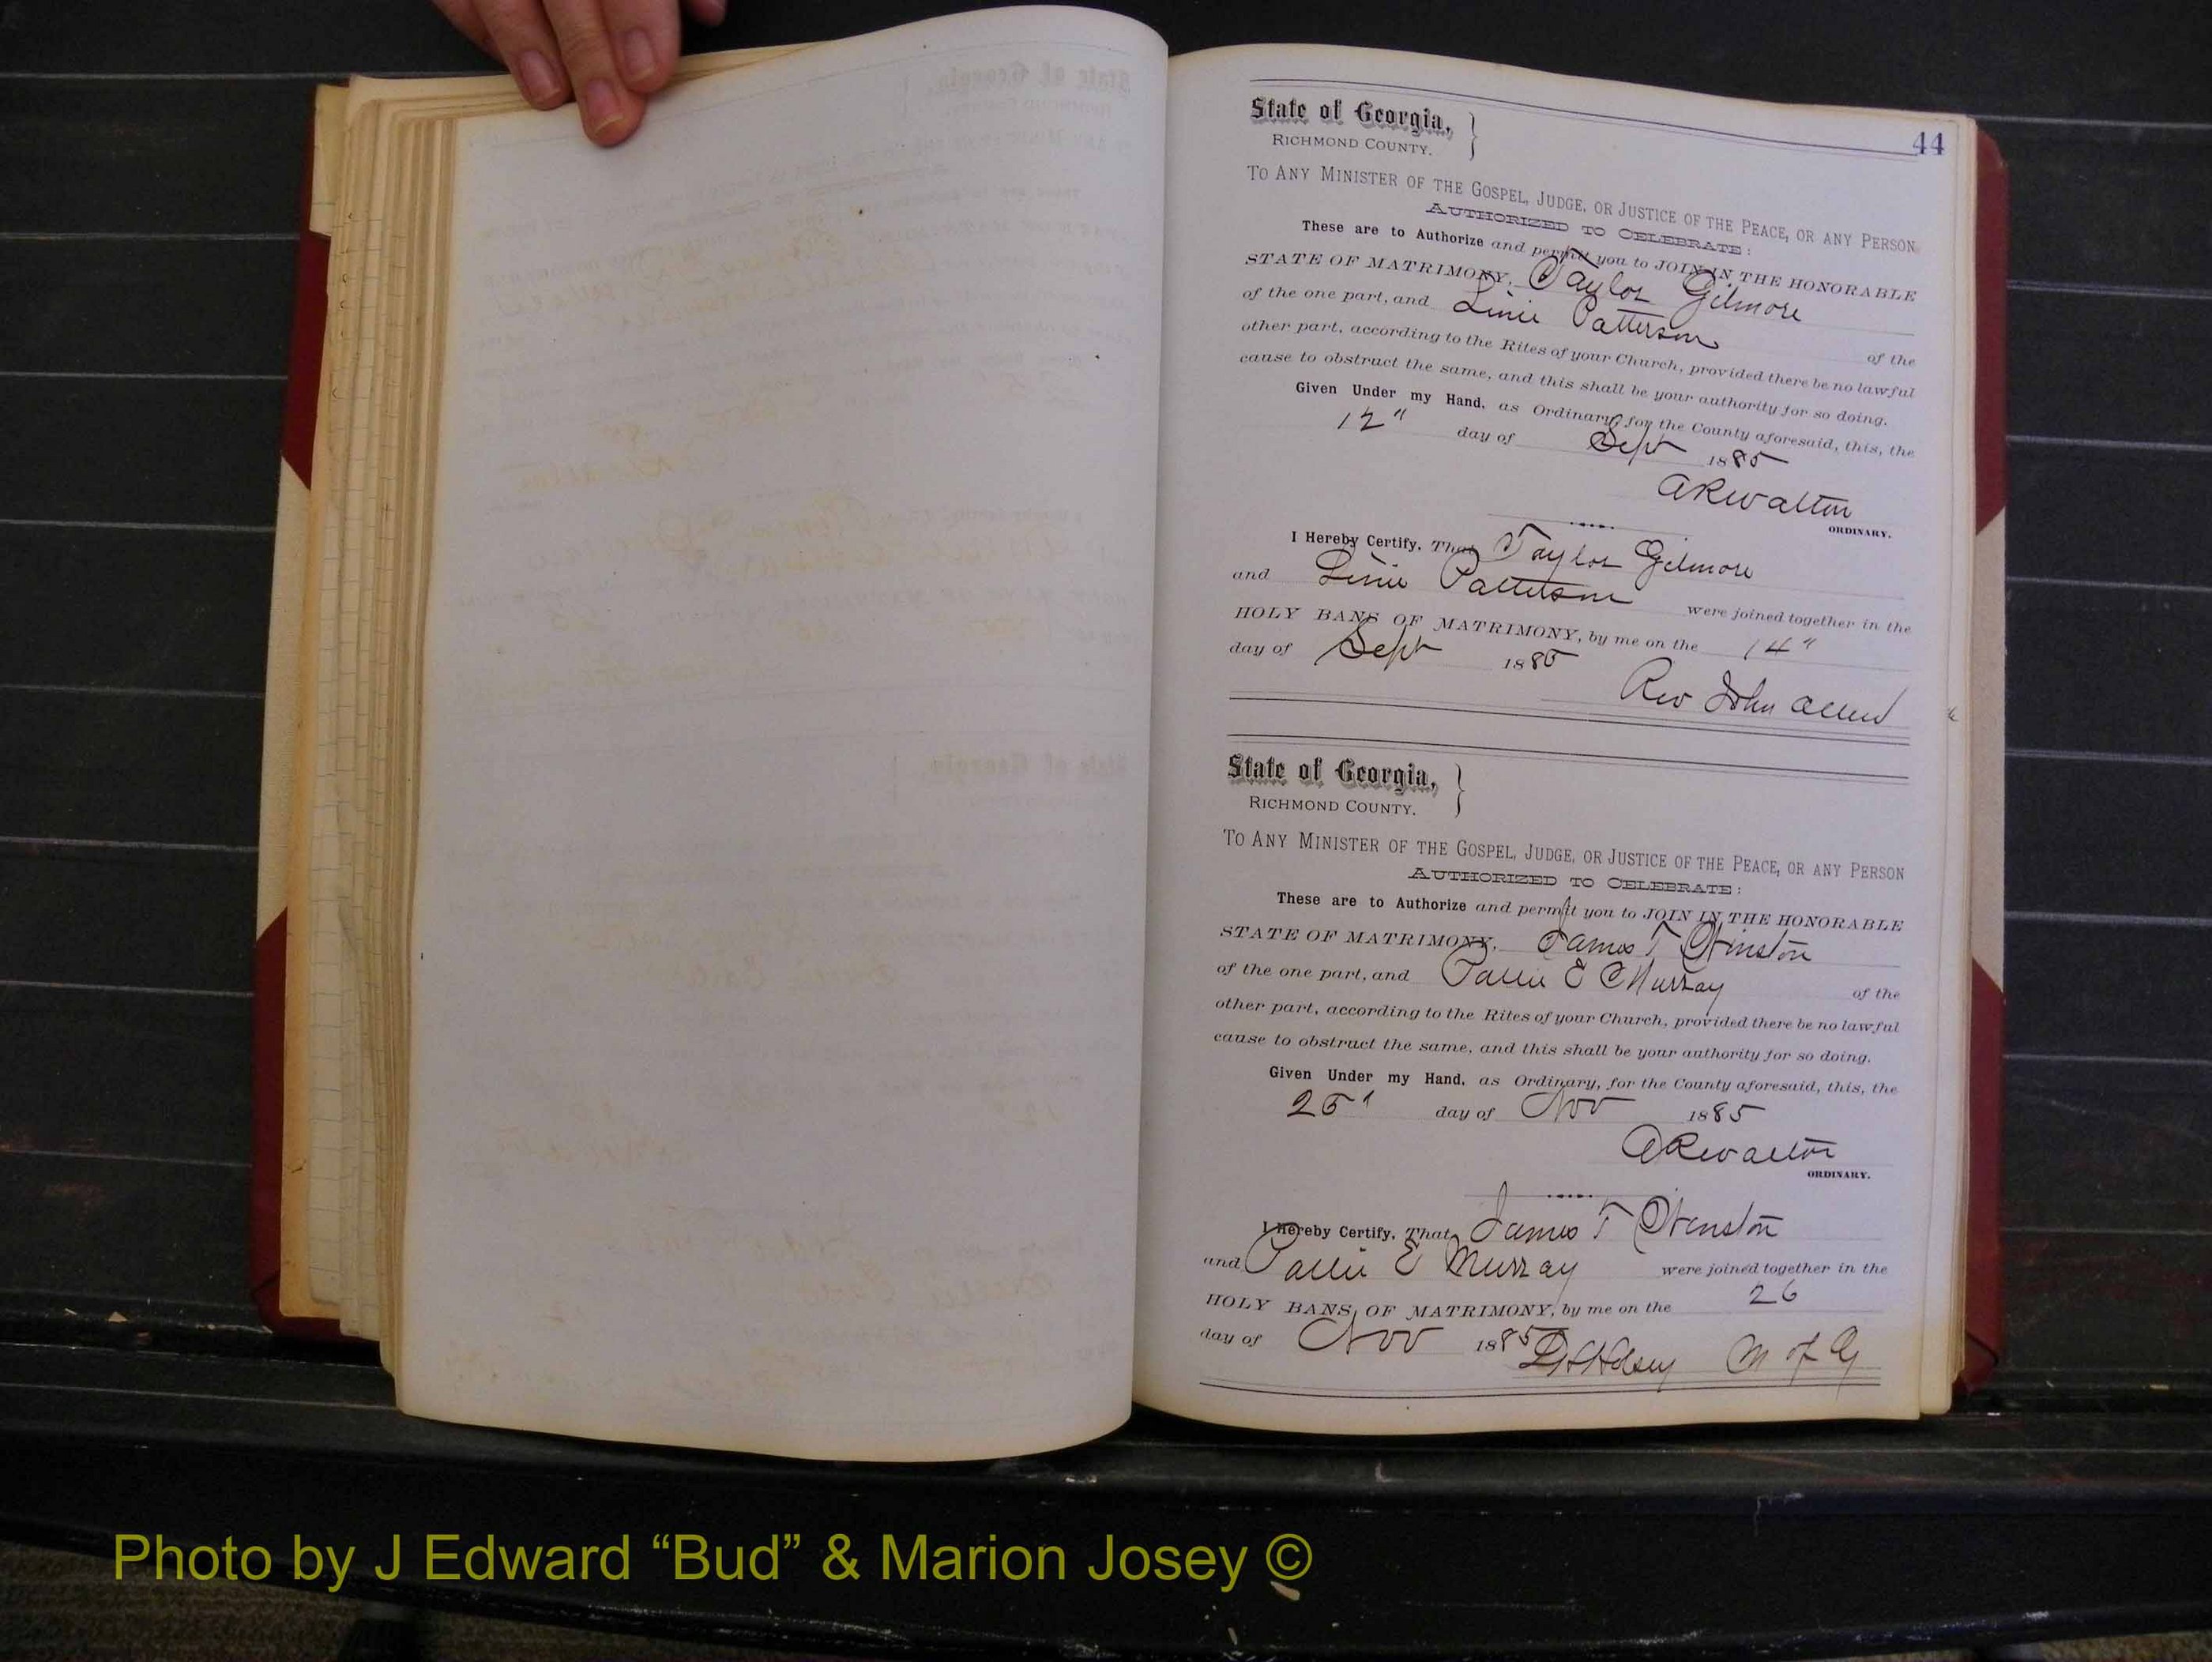 44
State of Georgia,
RICHMOND COUNTY.
TO ANY MINISTER OF THE GOSPEL, JUDGE, OR JUSTICE OF THE PEACE, OR ANY PERSON
AUTHORIZED TO CELEBRATE:
These are to Authorize and permit you to JOIN IN THE HONORABLE
STATE OF MATRIMONY, Taylor Gilmore
of the one part, and Linie Patterson of the
other part, according to the Rites of your Church, provided there be no lawful
cause to obstruct the same, and this shall be your authority for so doing.
Given Under my Hand, as Ordinary, for the County aforesaid, this, the
12" day of Sept 1885
ARWalton
ORDINARY.
I Hereby Certify, That Taylor Gilmore
and Linie Patterson were joined together in the
HOLY BANS OF MATRIMONY, by me on the 14"
day of Sept 1885
Rev John Allen
State of Georgia,
RICHMOND COUNTY.
TO ANY MINISTER OF THE GOSPEL, JUDGE, OR JUSTICE OF THE PEACE, OR ANY PERSON
AUTHORIZED TO CELEBRATE:
These are to Authorize and permit you to JOIN IN THE HONORABLE
STATE OF MATRIMONY, James T Winston
of the one part, and Pallie E Murray of the
other part, according to the Rites of your Church, provided there be no lawful
cause to obstruct the same, and this shall be your authority for so doing.
Given Under my Hand, as Ordinary, for the County aforesaid, this, the
25" day of Nov 1885
ARWalton
ORDINARY.
I Hereby Certify, That James T Winston
and Pallie E Murray were joined together in the
HOLY BANS OF MATRIMONY, by me on the 26
day of Nov 1885
M of G
Photo by J Edward “Bud” & Marion Josey ©